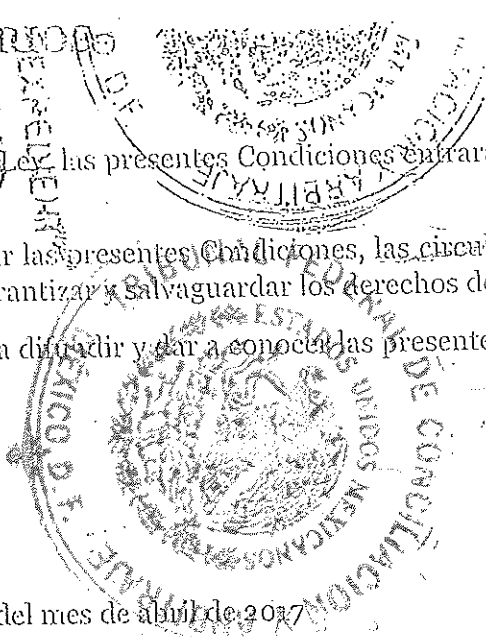 Ley, las presentes Condiciones entrará
r las presentes Condiciones, las circul
rantizar y salvaguardar los derechos de
a difundir y dar a conocer las presente
TRIBUNAL FEDERAL DE CONCILIACION
ESTADOS UNIDOS MEXICANOS
MEXICO, D. F.
del mes de abril de 2017